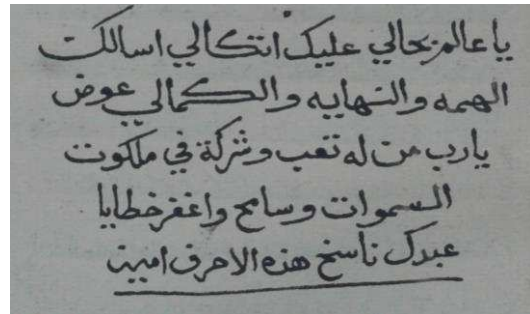 يا عالم بحالي عليك اتكالي اسالك
الهمه والنهايه والكمالي عوض
يارب من له تعب وشركة في ملكوت
السموات وسامح واغفر خطايا
عبدك ناسخ هذه الاحرف امين